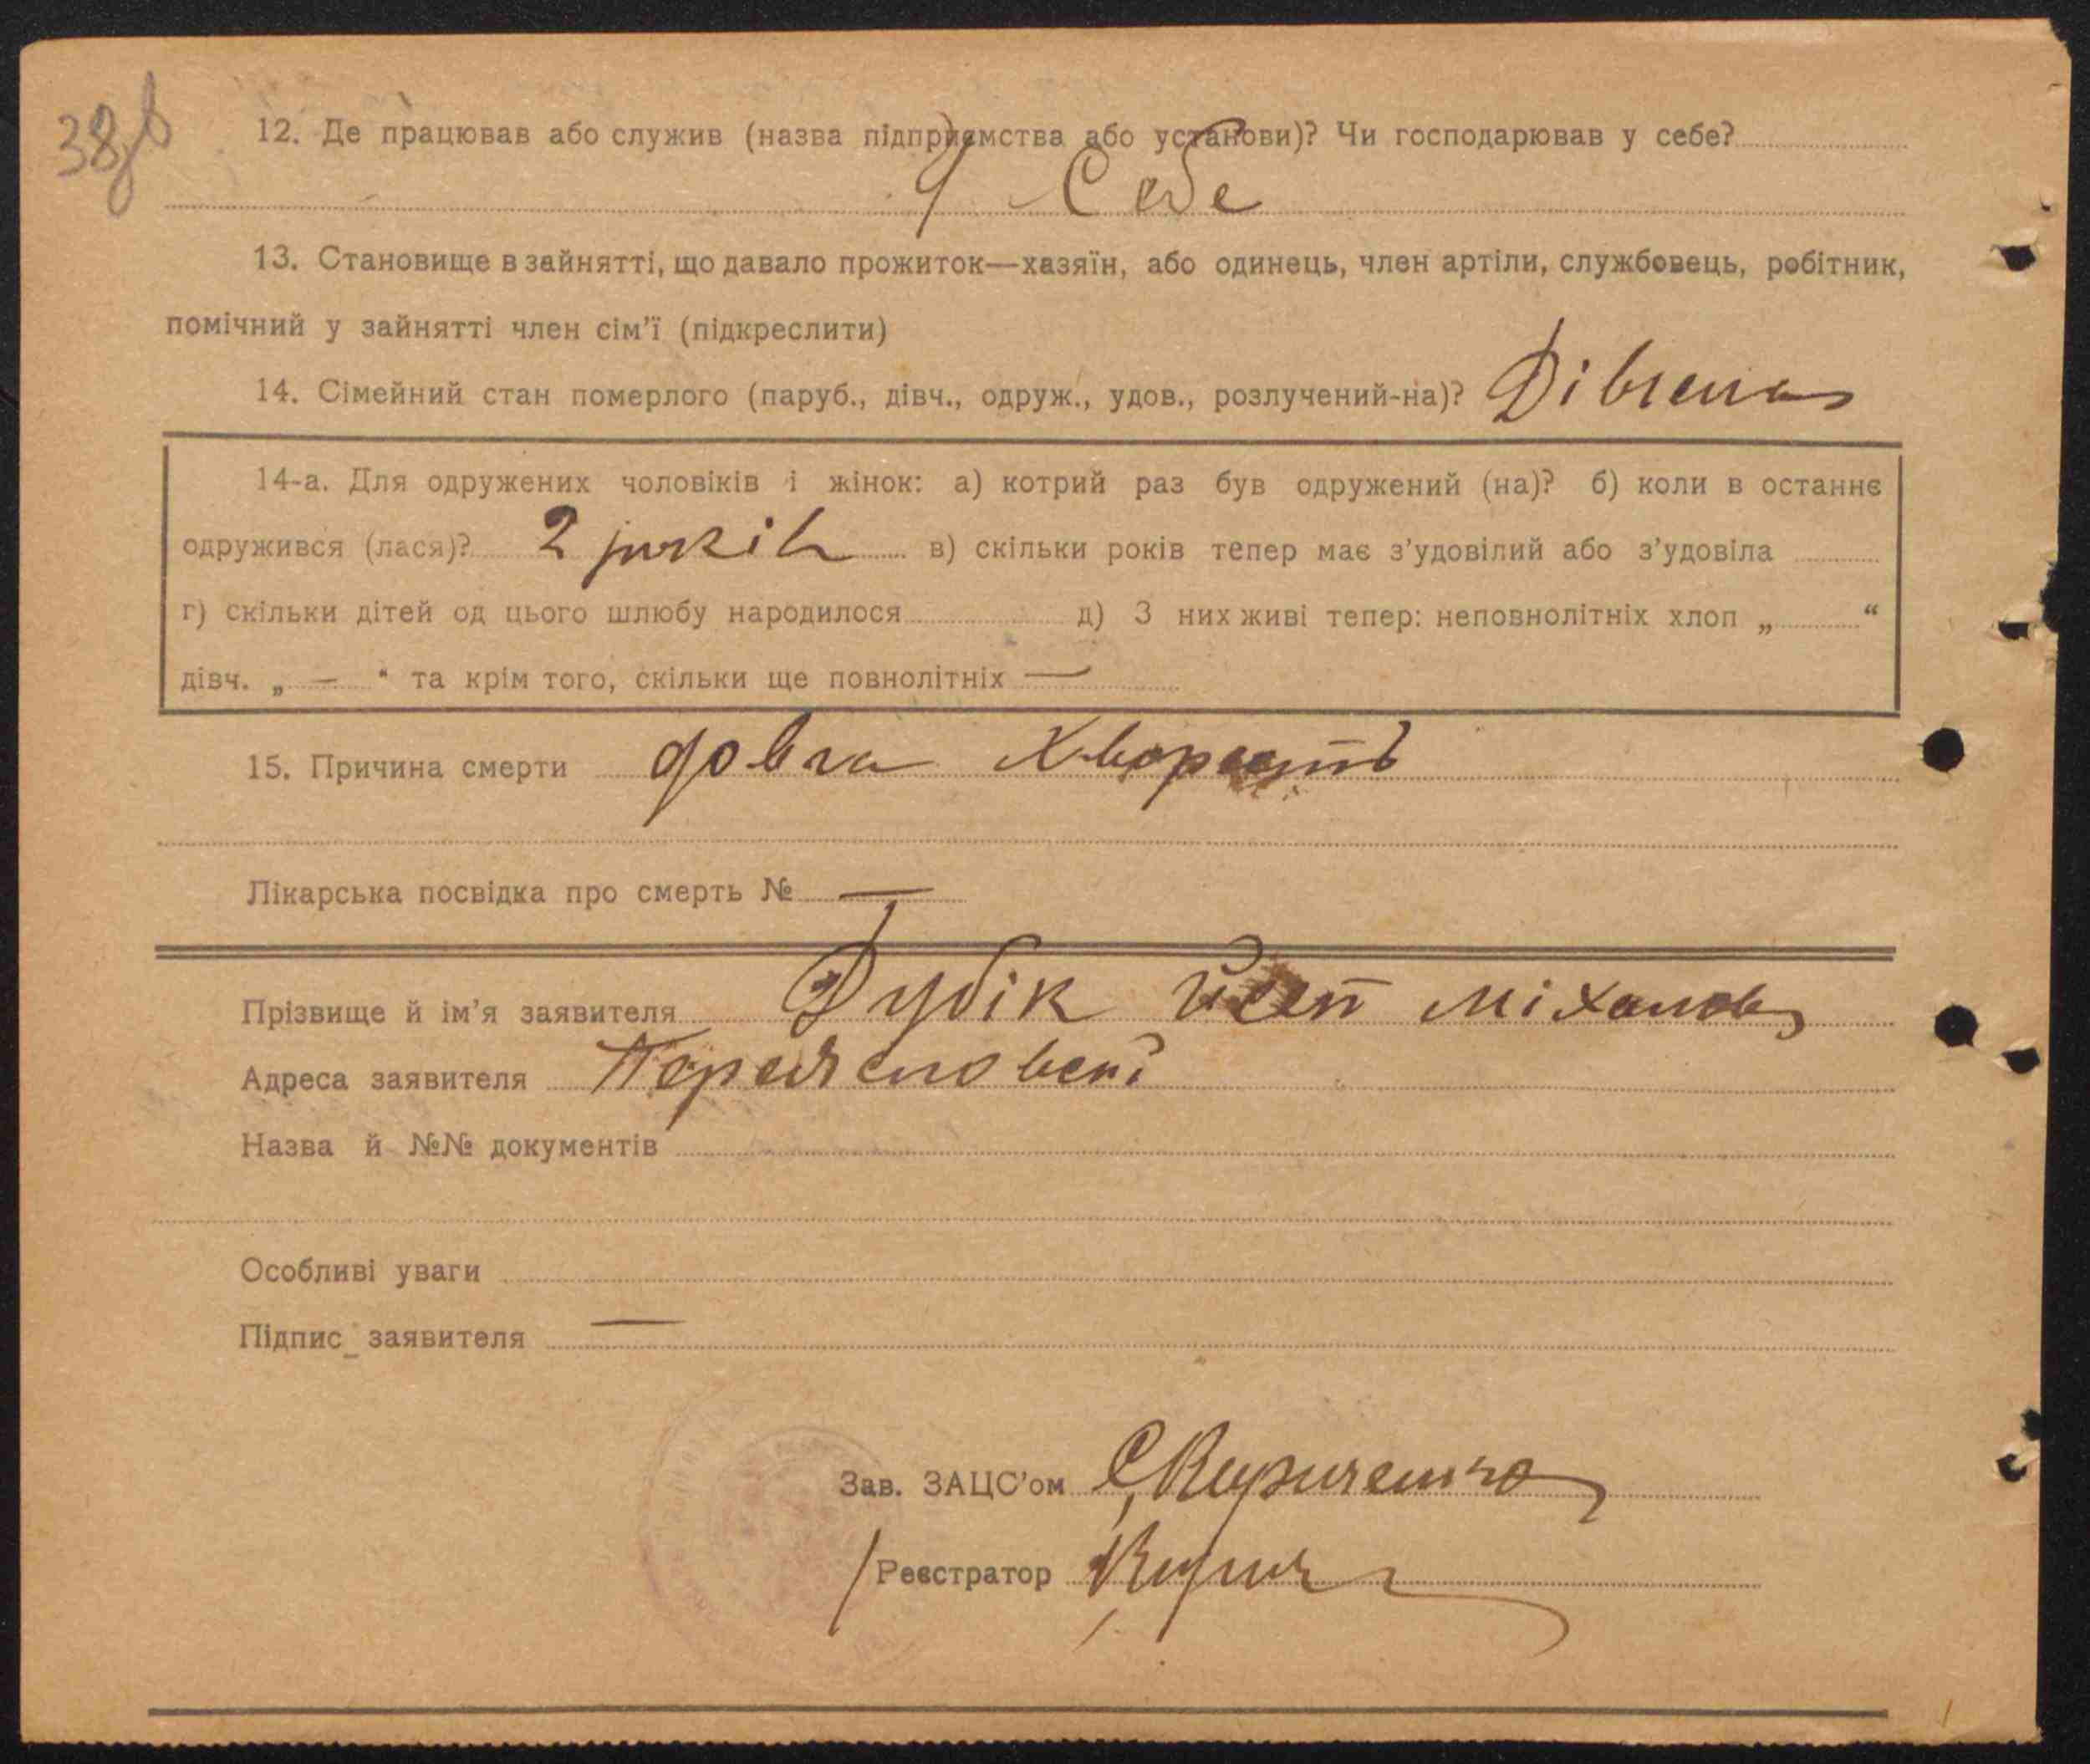 38
12. Де працював або служив (назва підприємства або установи)? Чи господарював у себе?
У Себе
13. Становище в зайнятті, що давало прожиток—хазяїн, або одинець, член артіли, службовець, робітник,
помічний у зайнятті член сім'ї (підкреслити)
14. Сімейний стан померлого (паруб., дівч., одруж., удов., розлучений-на)? Дівчена
14-а. Для одружених чоловіків і жінок: а) котрий раз був одружений (на)? б) коли в останнє
одружився (лася)? 2 років в) скільки років тепер має з'удовілий або з'удовіла
г) скільки дітей од цього шлюбу народилося д) З них живі тепер: неповнолітніх хлоп „ “
дівч. „ — “ та крім того, скільки ще повнолітніх —
15. Причина смерти довга хворость
Лікарська посвідка про смерть № —
Прізвище й ім'я заявителя Дубік
Адреса заявителя
Назва й №№ документів
Особливі уваги
Підпис заявителя —
Зав. ЗАЦС'ом
Реєстратор